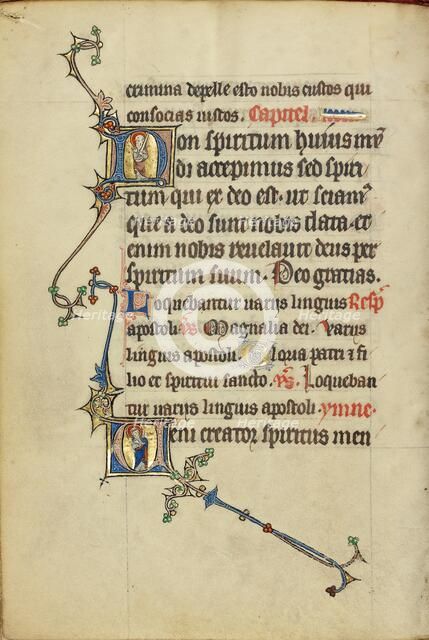 crimina depelle esto nobis custos qui
consocias iustos. Capitel.
Non spiritum huius mū
di accepimus sed spiri
tum qui ex deo est. ut sciamꝰ
que a deo sunt nobis data. et
enim nobis reuelauit deus per
spiritum suum. Deo gratias.
Loquebantur uariis linguis Resp̄
apostoli. V̄s. Magnalia dei. Variis
linguis apostoli. Gloria patri et fi
lio et spiritui sancto. V̄s. Loqueban
tur uariis linguis apostoli. ymne.
Ueni creator spiritus men
Heritage
Heritage
Heritage
Heritage
Heritage
Heritage